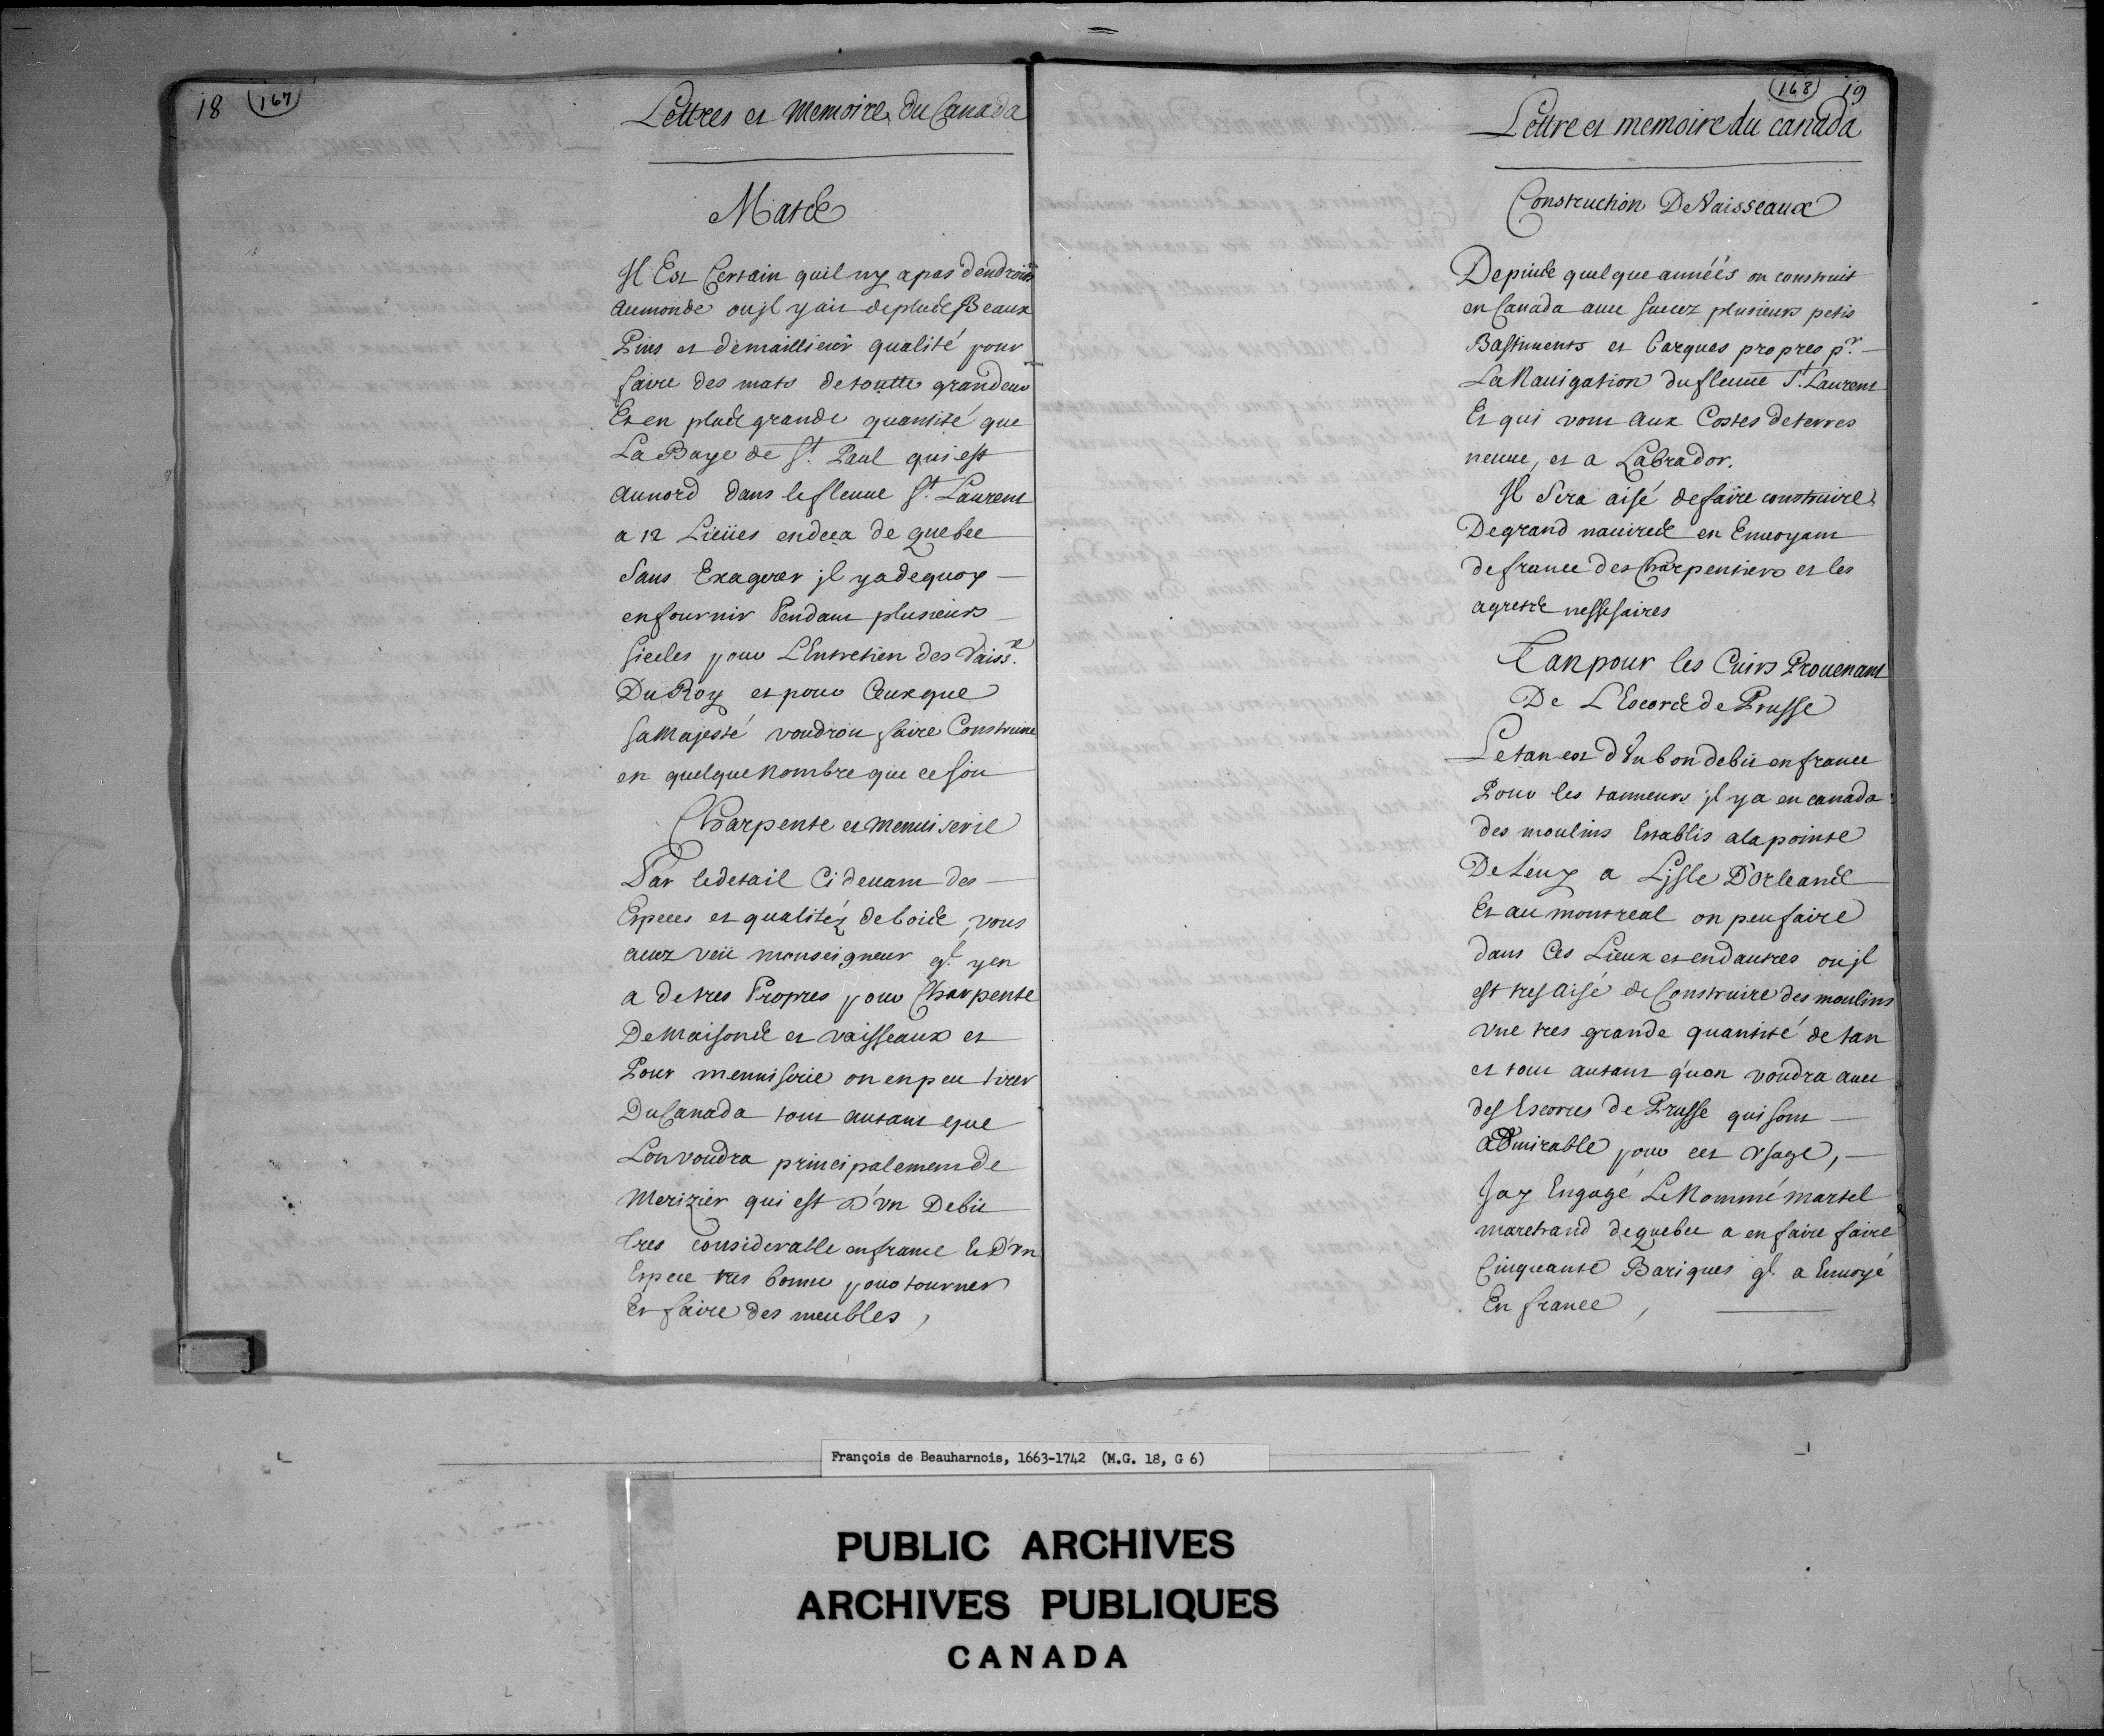 18 (167)
Lettres et Memoires du Canada
Mats
Il Est Certain quil ny a pas dendroits
au monde ou jl y ait de plus Beaux
Pins et de maillieur qualité pour
faire des mats de toutte grandeur
Et en plus grande quantité que
La Baye de St. Paul qui est
au nord dans le fleuue St. Laurent
a 12 Lieües en deca de quebec
Sans Exagerer jl y a de quoy
en fournir Pendant plusieurs
siecles pour L'Entretien des Vaiss.x
Du Roy et pour Ceux que
sa Majesté voudroit faire Construire
en quelque Nombre que ce soit
Charpente et Menuiserie
Par le detail Ci deuant des
Especes et qualitéz de bois, vous
auez veü monseigneur ql. y en
a de tres Propres pour Charpente
De Maisons et vaisseaux et
Pour menuiserie on en peu tirer
Du Canada tout autant que
Lon voudra principalement de
Merizier qui est d'vn Debit
tres considerable en france Et D'vn
Espece tres bonne pour tourner
Et faire des meubles,
(168) 19
Lettre et memoire du canada
Construction De Vaisseaux
Depuis quelque annéés on construit
en Canada auec succez plusieurs petis
Bastiments et Barques propres pr.
La Nauigation du fleuue St. Laurent
Et qui vont aux Costes de terres
neuue, et a Labrador.
Il Sera aisé de faire construire
De grand nauires en Enuoyant
de france des Charpentiers et les
agrets nessesaires
Tan pour les Cuirs Prouenant
De L'Escorce de Prusse
Le tan est d'Vn bon debit en france
Pour les tanneurs jl y a en canada
des moulins Establis a la pointe
De Leuy a Lisle D'Orleans
Et au montreal on peu faire
dans Ces Lieux et en dautres ou jl
est tres aisé de Construire des moulins
vne tres grande quantité de tan
et tout autant qu'on voudra auec
des Escorces de Prusse qui sont
admirable pour cet vsage,
Jay Engagé Le Nommé martel
marchand de quebec a en faire faire
Cinquante Bariques ql. a Enuoyé
En france,
François de Beauharnois, 1663-1742 (M.G. 18, G 6)
PUBLIC ARCHIVES
ARCHIVES PUBLIQUES
CANADA